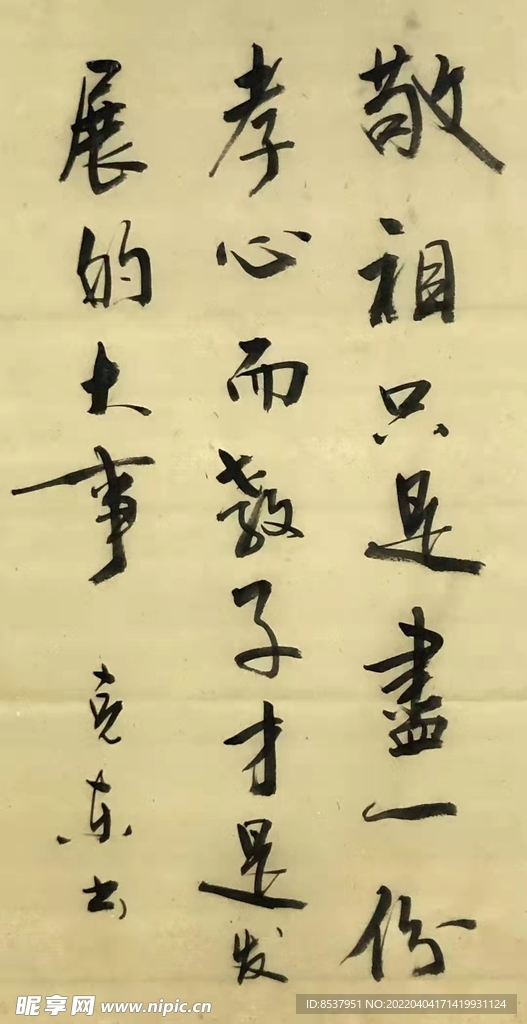 敬祖只是盡一份
孝心而教子才是发
展的大事
克东书
昵享网 www.nipic.cn
ID:8537951 NO:20220404171419931124